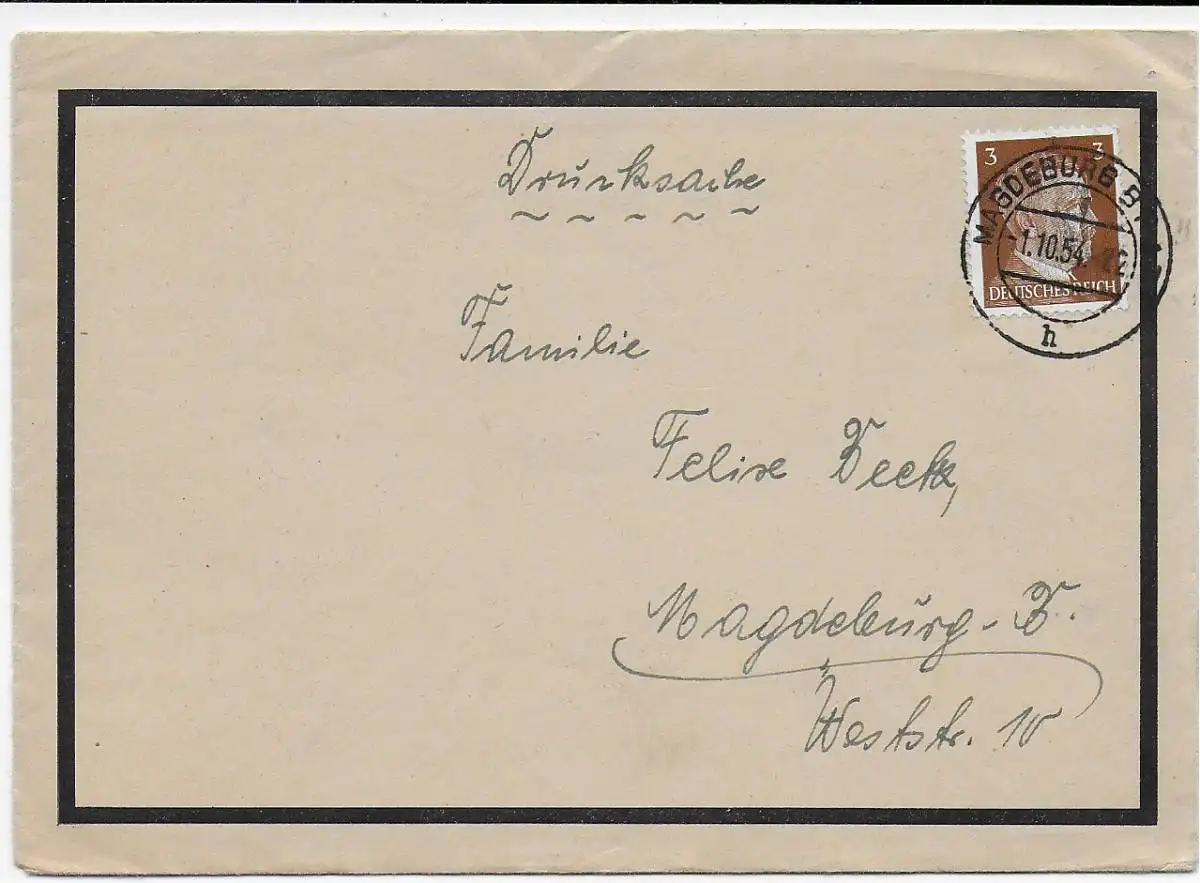 Drucksache
3 3
MAGDEBURG
1.10.54.
DEUTSCHES REICH
h
Familie
Felix
Magdeburg-
Weststr. 10